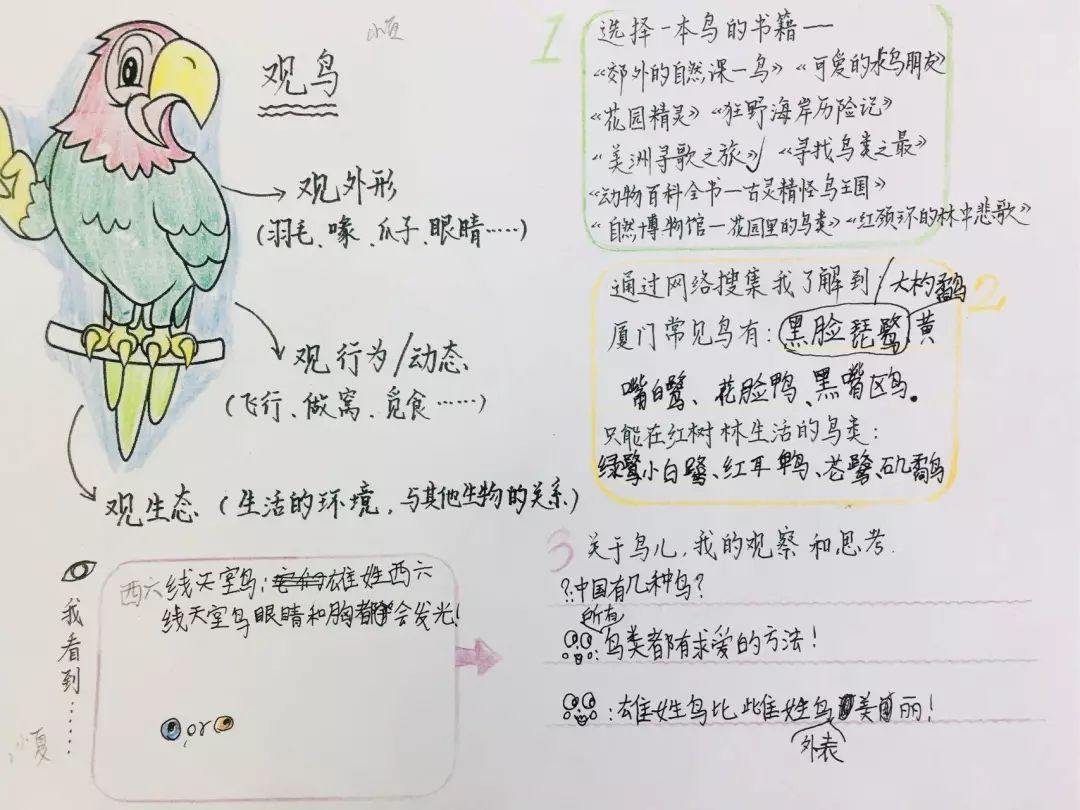 小夏
观鸟
观外形
(羽毛、喙、爪子、眼睛……)
观行为/动态
(飞行、做窝、觅食……)
观生态(生活的环境,与其他生物的关系)
我看到……
西六线天堂鸟:雄姓西六
线天堂鸟眼睛和胸都会发光!
or
小夏
1
选择一本鸟的书籍——
《郊外的自然课—鸟》《可爱的水鸟朋友》
《花园精灵》《狂野海岸历险记》
《美洲寻歌之旅》《寻找鸟类之最》
《动物百科全书—古灵精怪鸟王国》
《自然博物馆—花园里的鸟类》《红颈环的林中悲歌》
2
通过网络搜集我了解到/大杓鹬
厦门常见鸟有:黑脸琵鹭、黄
嘴白鹭、花脸鸭、黑嘴鸥。
只能在红树林生活的鸟类:
绿鹭小白鹭、红耳鹎、苍鹭、矶鹬
3 关于鸟儿,我的观察和思考.
?:中国有几种鸟?
所有
:鸟类都有求爱的方法!
:雄姓鸟比雌姓鸟美丽!
外表